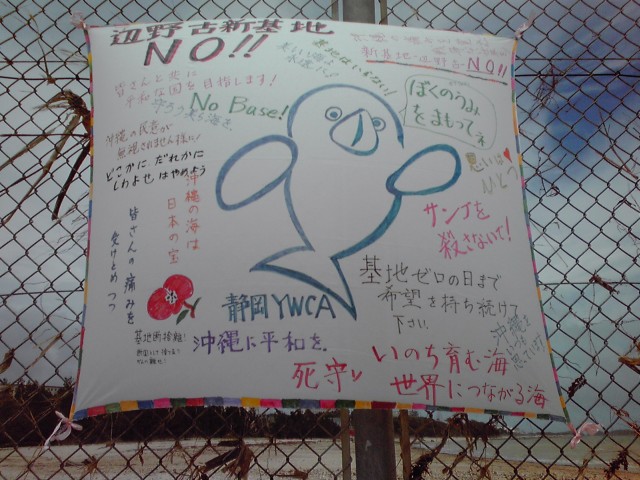 辺野古新基地
NO!!
新基地
NO!!
皆さんと共に
平和な国を目指します!
守ろう美ら海を
No Base!
基地はいらない!
美しい海よ
永遠に!
ぼくのうみ
をまもってネ
沖縄の民意が
無視されません様に!
どこかに だれかに
しわよせはやめよう
思いは♥
ひとつ
沖縄の海は
日本の宝
皆さんの痛みを
受けとめつつ
サンゴを
殺さないで!
基地ゼロの日まで
希望を持ち続けて
下さい
静岡YWCA
基地断捨離!
沖縄に平和を
沖縄を
思っています
死守
いのち育む海
世界につながる海